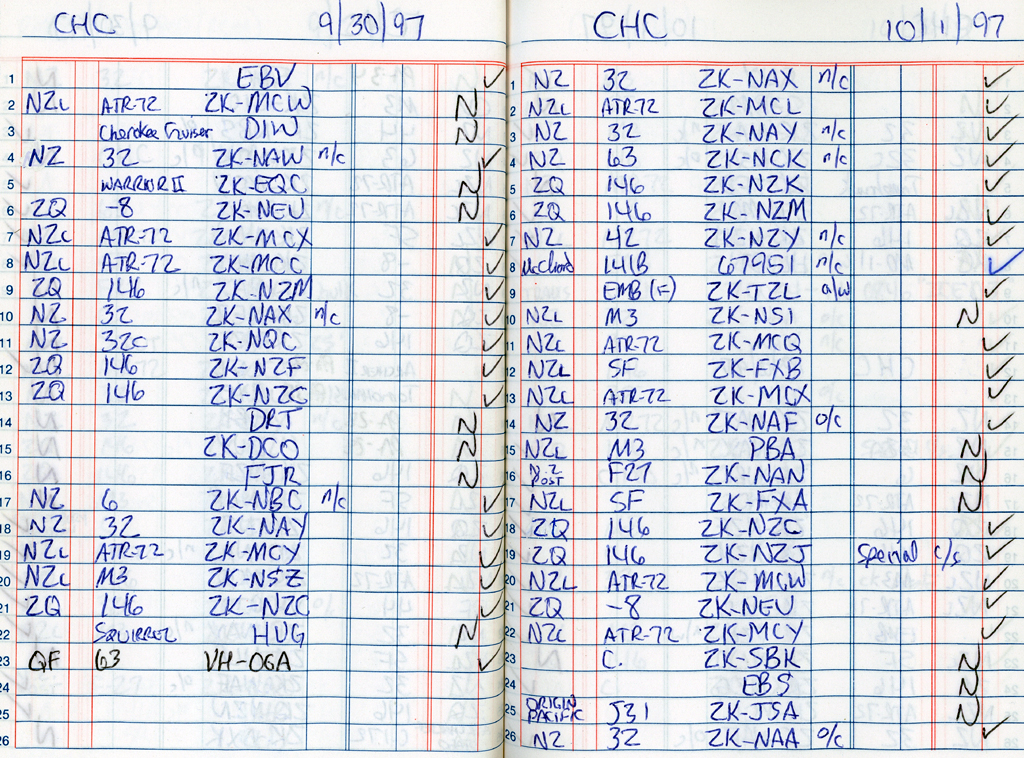 CHC 9/30/97
1 EBV ✓
2 NZL ATR-72 ZK-MCW N
3 Cherokee Cruiser DIW N
4 NZ 32 ZK-NAW n/c ✓
5 WARRIOR II ZK-EQC N
6 ZQ -8 ZK-NEU N
7 NZL ATR-72 ZK-MCX ✓
8 NZL ATR-72 ZK-MCC ✓
9 ZQ 146 ZK-NZM ✓
10 NZ 32 ZK-NAX n/c ✓
11 NZ 32C ZK-NQC ✓
12 ZQ 146 ZK-NZF ✓
13 ZQ 146 ZK-NZC ✓
14 DRT N
15 ZK-DCO N
16 FJR N
17 NZ 6 ZK-NBC n/c ✓
18 NZ 32 ZK-NAY ✓
19 NZL ATR-72 ZK-MCY ✓
20 NZL M3 ZK-NSZ ✓
21 ZQ 146 ZK-NZC ✓
22 SQUIRREL HUG N
23 QF 63 VH-OGA ✓
24
25
26
CHC 10/1/97
1 NZ 32 ZK-NAX n/c ✓
2 NZL ATR-72 ZK-MCL ✓
3 NZ 32 ZK-NAY n/c ✓
4 NZ 63 ZK-NCK n/c ✓
5 ZQ 146 ZK-NZK ✓
6 ZQ 146 ZK-NZM ✓
7 NZ 42 ZK-NZY n/c ✓
8 McChord 141B 67951 n/c ✓
9 EMB (=) ZK-TZL a/w ✓
10 NZL M3 ZK-NSI N
11 NZL ATR-72 ZK-MCQ ✓
12 NZL SF ZK-FXB ✓
13 NZL ATR-72 ZK-MCX ✓
14 NZ 32 ZK-NAF o/c ✓
15 NZL M3 PBA N
16 N.Z. POST F27 ZK-NAN N
17 NZL SF ZK-FXA N
18 ZQ 146 ZK-NZC ✓
19 ZQ 146 ZK-NZJ Special c/s ✓
20 NZL ATR-72 ZK-MCW ✓
21 ZQ -8 ZK-NEU ✓
22 NZL ATR-72 ZK-MCY ✓
23 C. ZK-SBK N
24 EBS N
25 ORIGIN PACIFIC J31 ZK-JSA N
26 NZ 32 ZK-NAA o/c ✓